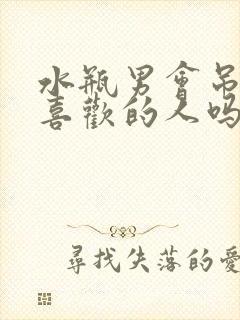 水瓶男會吊
喜歡的人吗
尋找失落的愛